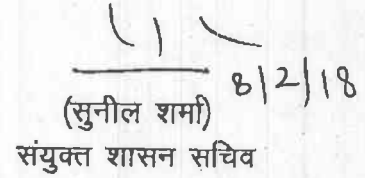 8/2/18
(सुनील शर्मा)
संयुक्त शासन सचिव